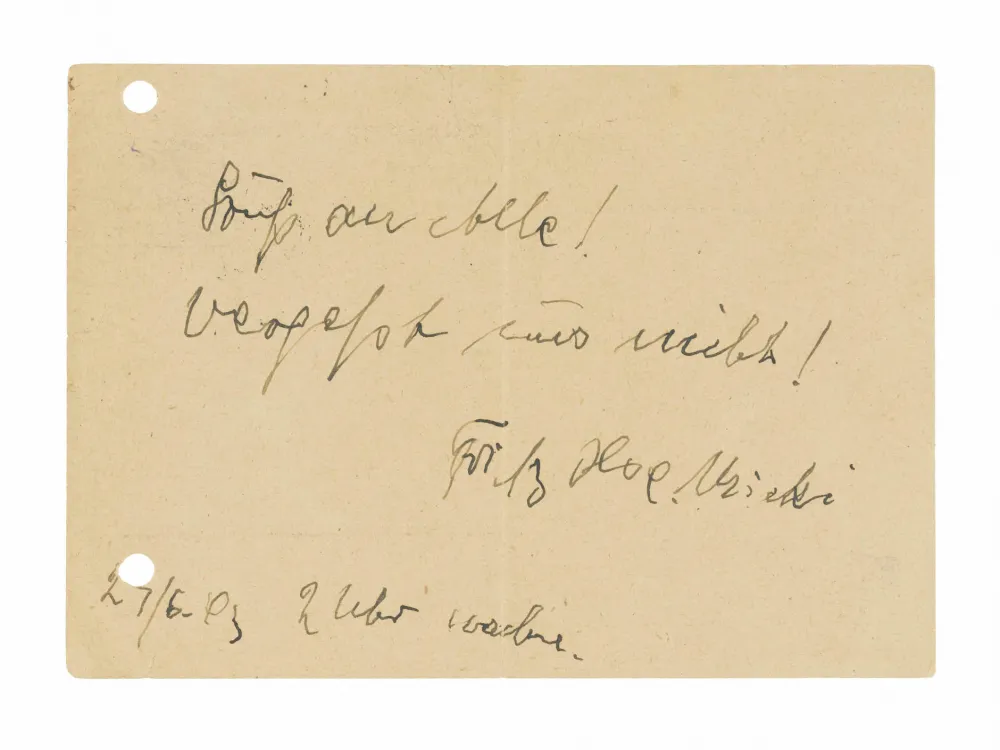 Gruß an Alle!
Vergeßt uns nicht!
Fritz Ilse Micki
27/6.43 2 Uhr nachm.